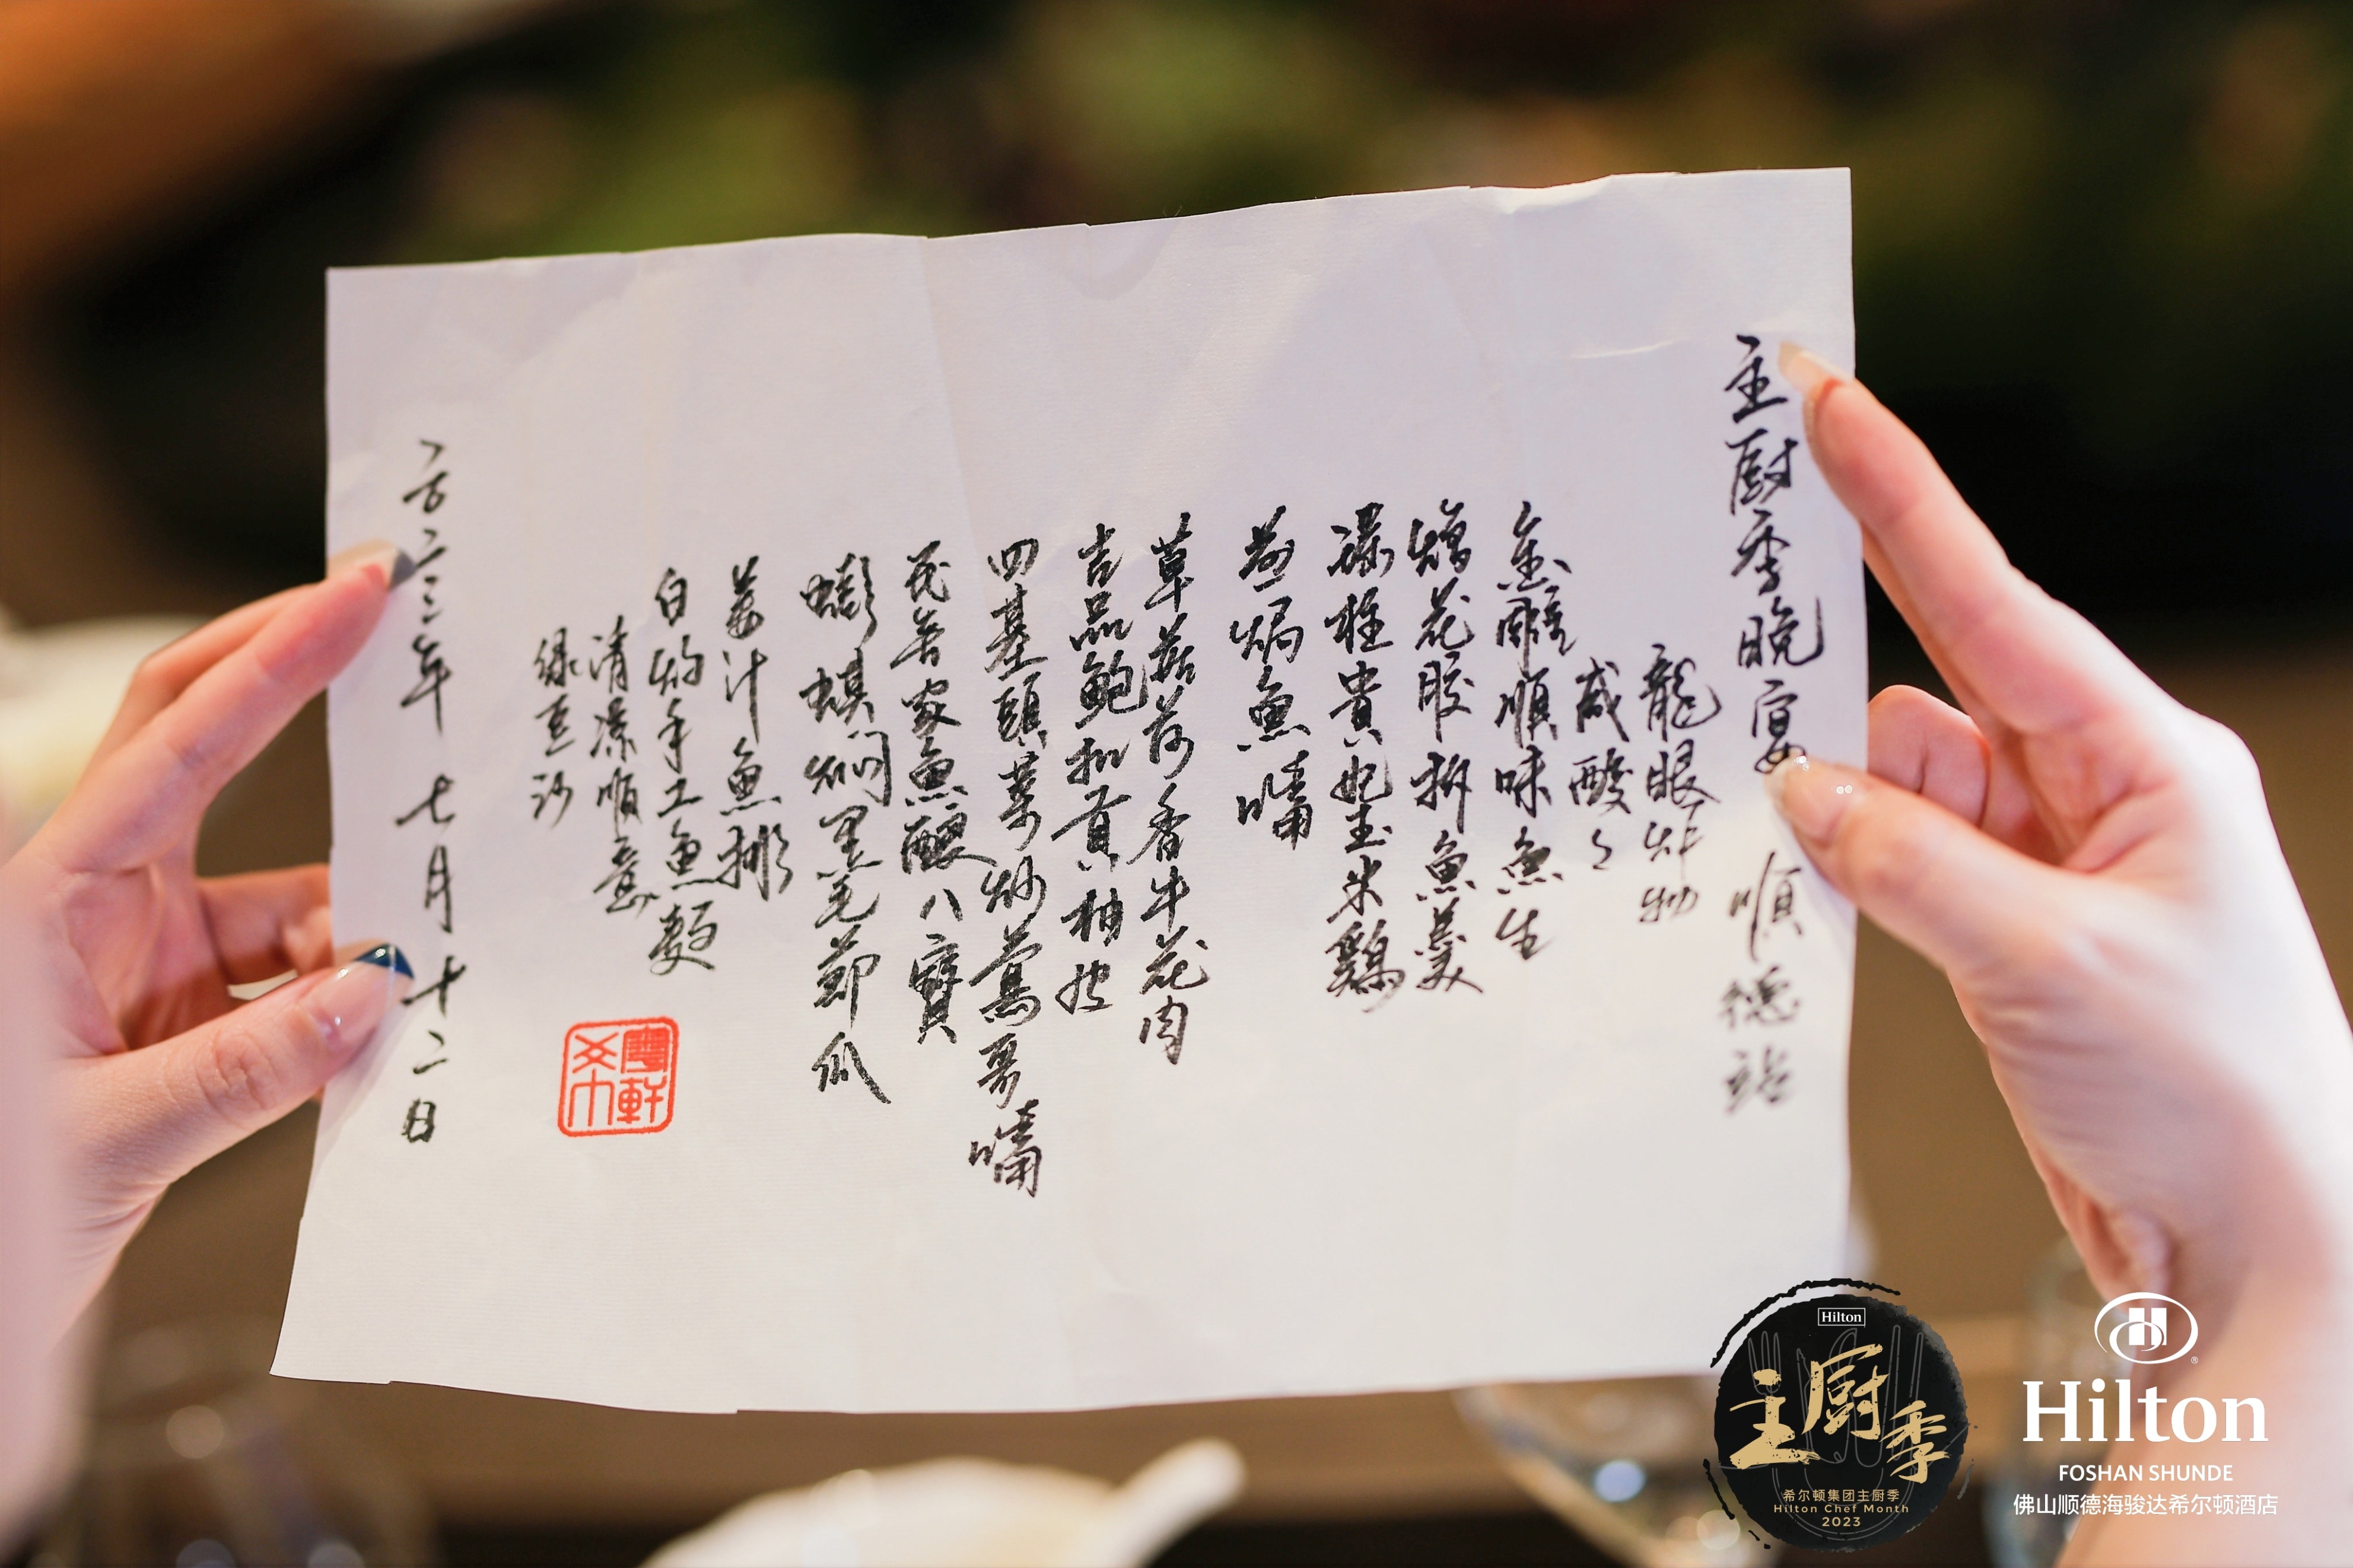 主厨季晚宴 順德站
龍眼炸物
咸酸〻
魚雕順味魚生
花胶拆魚羹
貴妃玉米鷄
焗魚嘴
草菇荷香牛花肉
吉品鲍扣貢柚皮
四基頭菜炒萵哥嘴
家魚釀八寶
蟛蜞焖黑毛節瓜
姜汁魚揤
白灼手工魚麪
清漾順意
绿豆沙
二〇二三年 七月十二日
軒
Hilton
主厨季
希尔顿集团主厨季
Hilton Chef Month
2023
Hilton
FOSHAN SHUNDE
佛山顺德海骏达希尔顿酒店